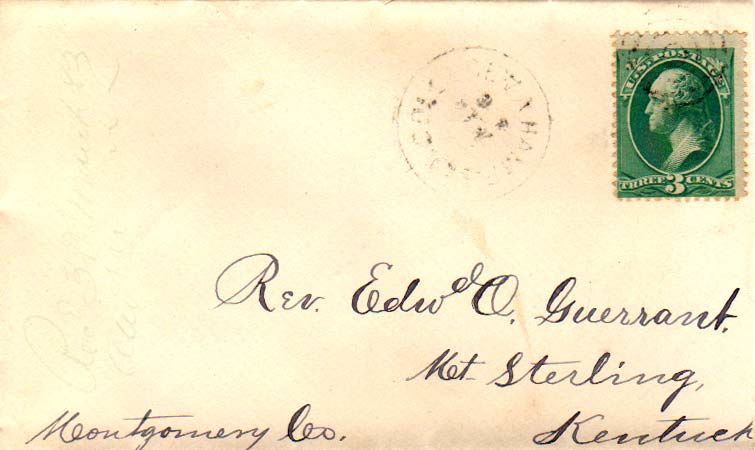 U.S. POSTAGE
THREE 3 CENTS
Rev. Edwd O. Guerrant.
Mt. Sterling,
Montgomery Co. Kentuck